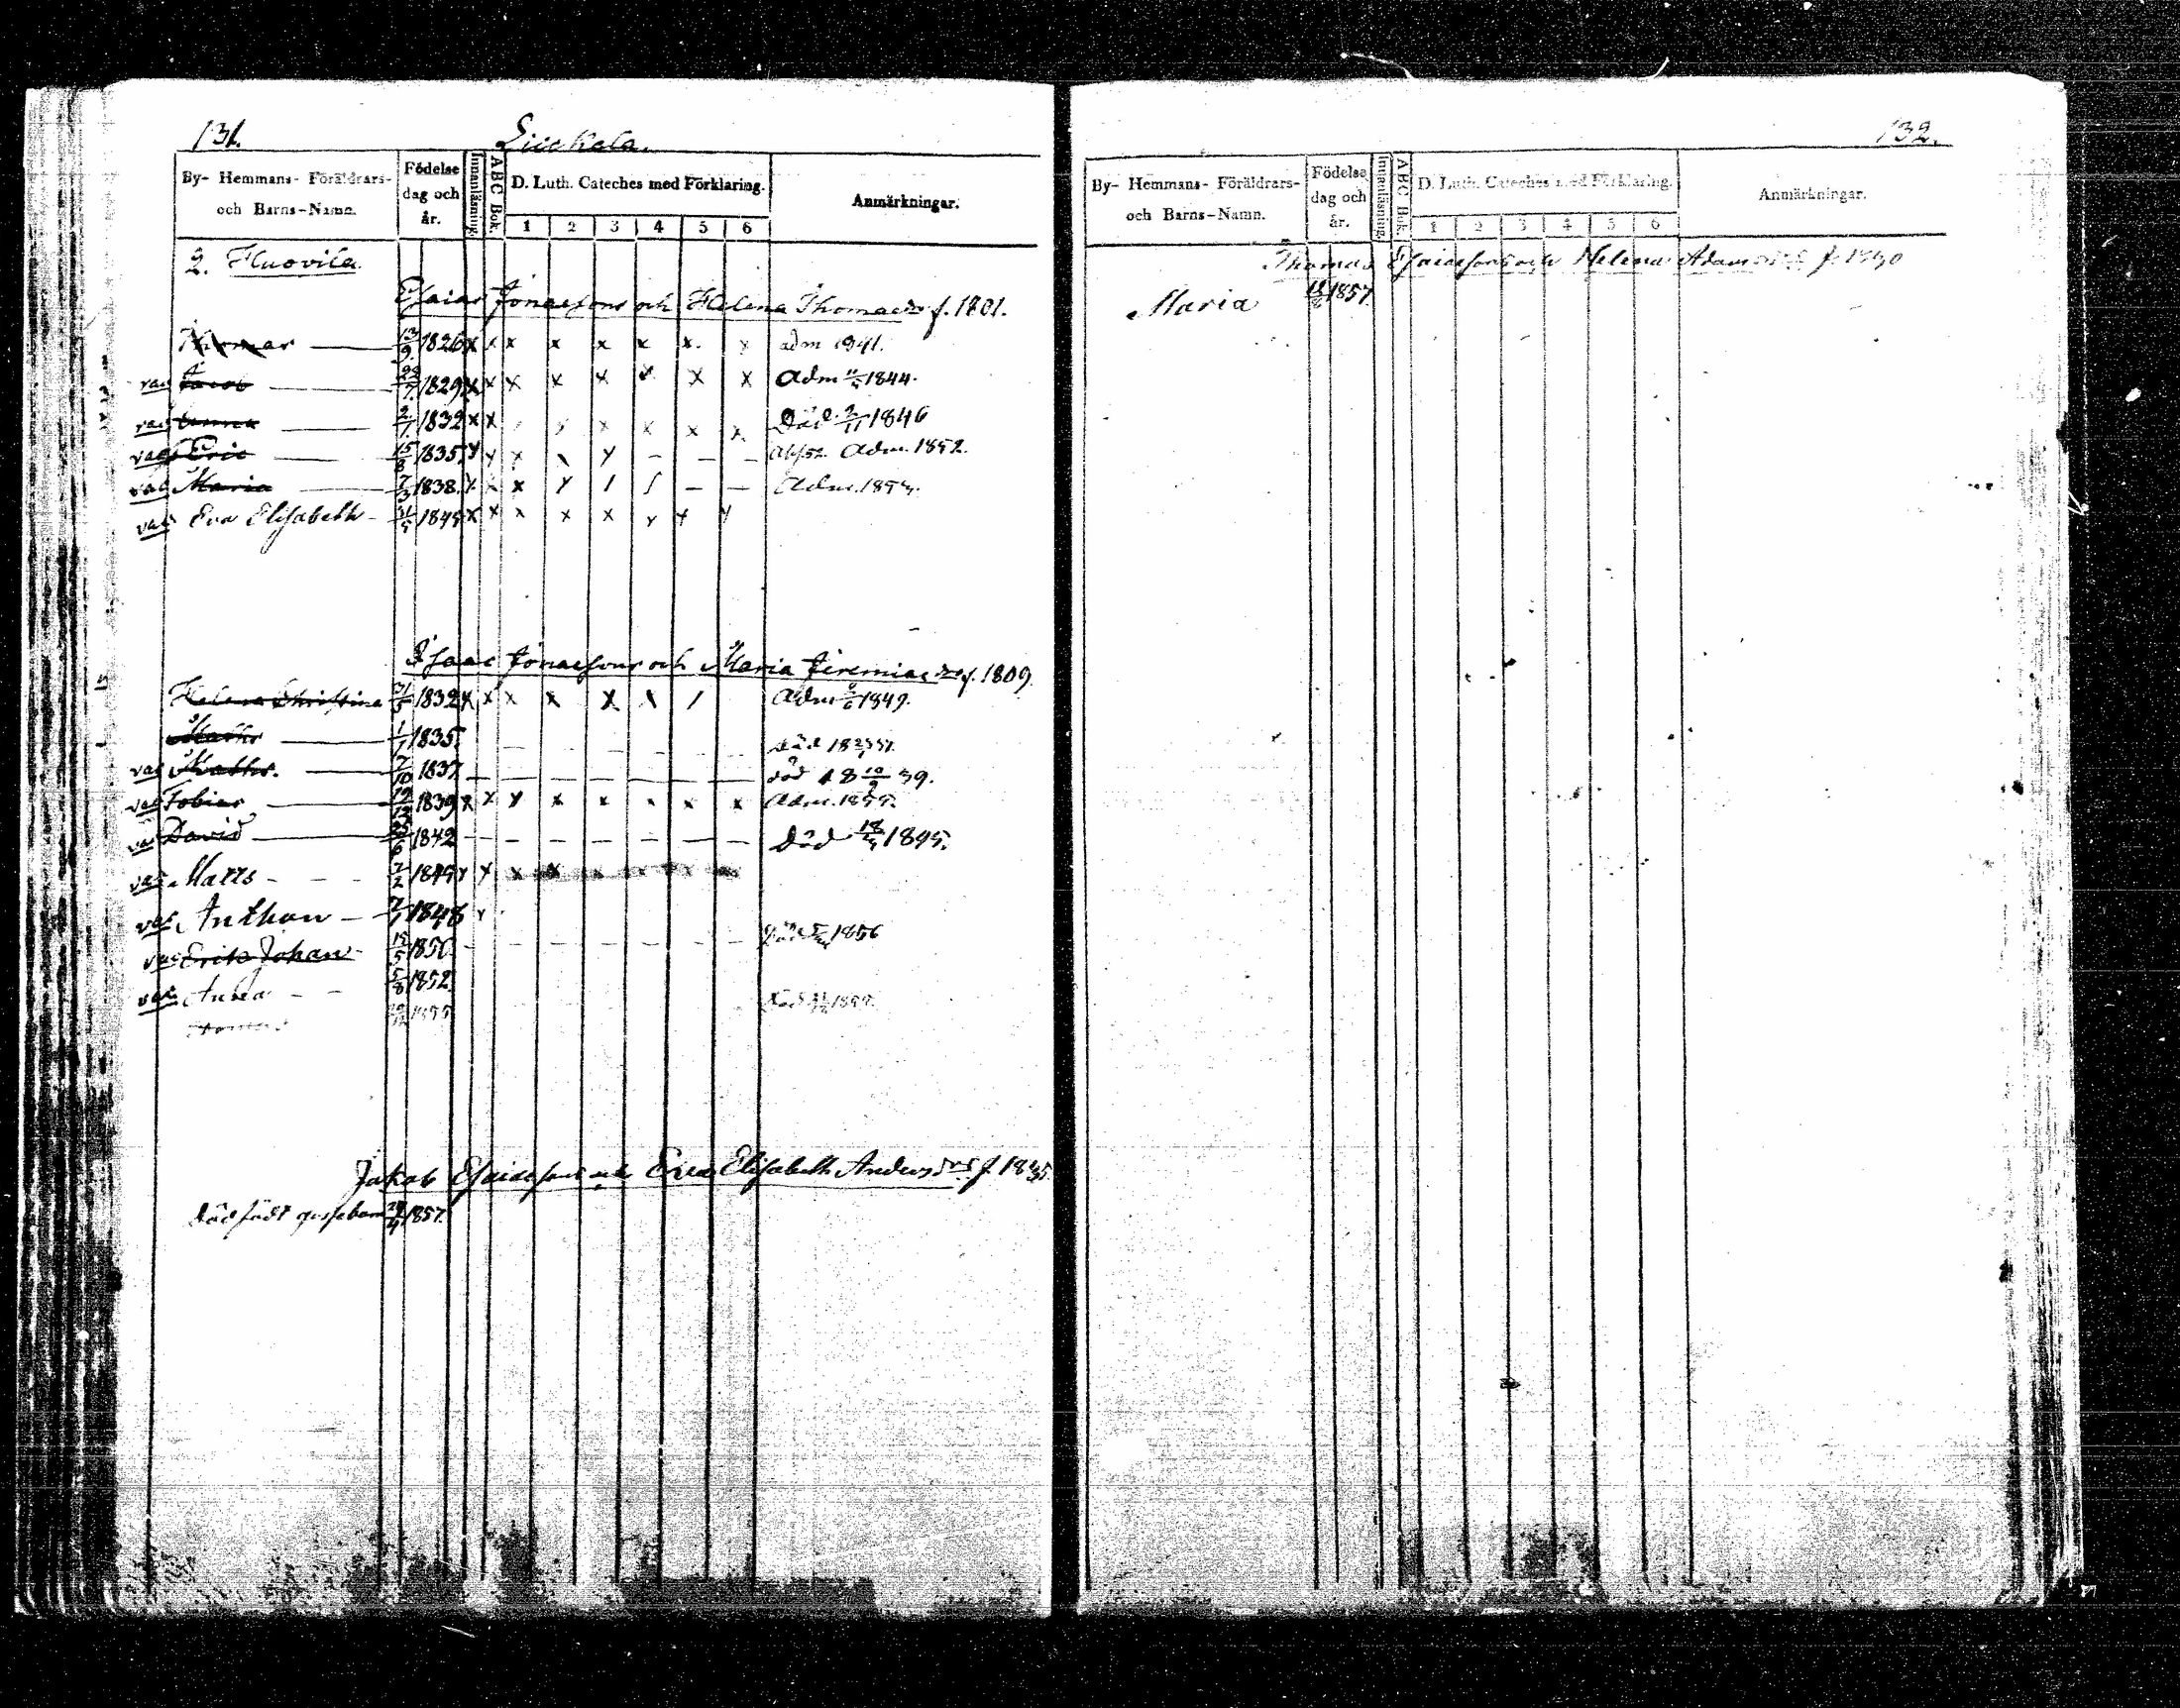 131.
Liickala.
By- Hemmans- Föräldrars- och Barns-Namn.
Födelse dag och år.
Innanläsning.
ABC Bok.
D. Luth. Cateches med Förklaring.
1 2 3 4 5 6
Anmärkningar.
2. Huovila
Esaias Jonaesons och Helena Thomaedr f. 1801.
Thomas — 13/9 1826 x x x x x x x x adm 1841.
vac Jacob — 29/7 1829 x x x x x x x x Adm 11/5 1844.
vac Anna — 2/1 1832 x x x x x x Död 2/11 1846
vac Eric — 15/8 1835 Adm. 1852.
vac Maria — 7/3 1838. x - x - -
vac Eva Elisabeth - 1845 x x x x x
Isaac Jonaesons och Maria Jeremiaedr f. 1809.
Helena Christina 31/5 1832 x x x x x Adm 6/6 1849.
Matts — 1/1 1835. - - - - - - död
vac Matts. — 7/10 1837 — — — — — — död 18 10/9 39.
vac Tobias — 1839 x x x x x x Adm.
vac David — 1842 - - - - - - Död 18/5 1845.
vac Matts - - - 3/2 1845
vac Anthon — 7/1 1848
vac Erik Johan 15/5 1850 - - - - - - Död 1856
vac Anna - - 5/8 1852
Jakob Esaiaesons och Eva Elisabeth Andersdr f 1835
Död födt gossebarn 1857.
132.
By- Hemmans- Föräldrars- och Barns-Namn.
Födelse dag och år.
Innanläsning.
ABC Bok.
D. Luth. Cateches med Förklaring.
1 2 3 4 5 6
Anmärkningar.
Thomas Esaiaesons och Helena Adamsdr f. 1830
Maria 1857